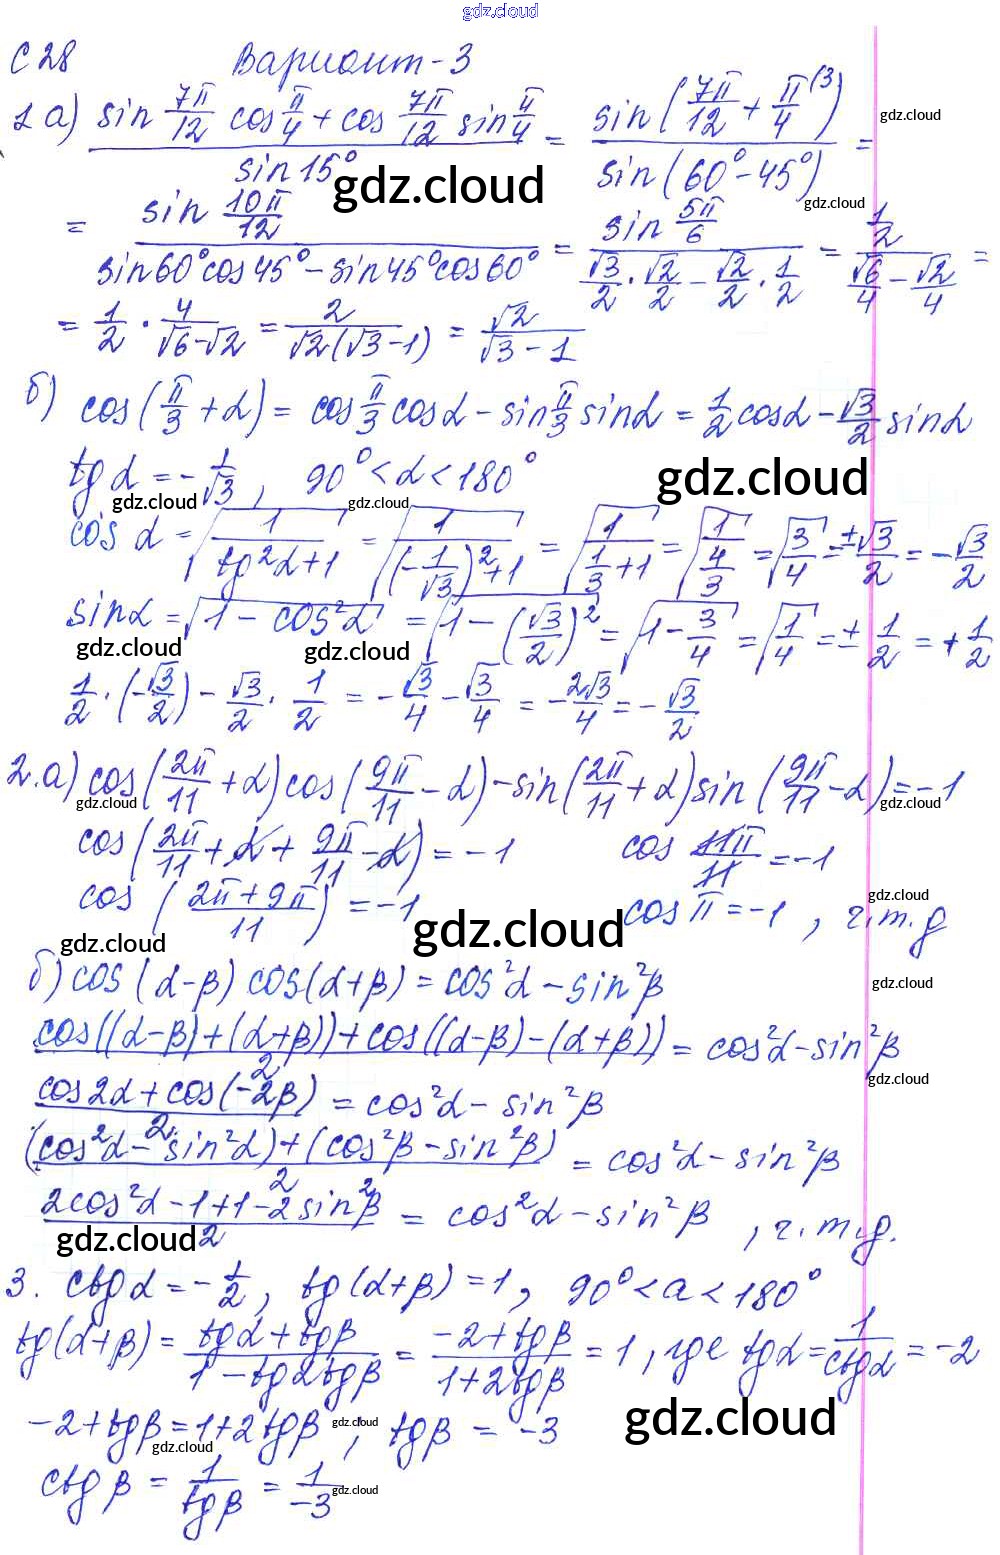 gdz.cloud
С 28 Вариант-3
1 а) (sin 7π/12 cos π/4 + cos 7π/12 sin π/4) / sin 15° = sin(7π/12 + π/4)^(3 / sin(60° - 45°) = gdz.cloud
gdz.cloud gdz.cloud
= sin 10π/12 / (sin 60° cos 45° - sin 45° cos 60°) = sin 5π/6 / (√3/2 · √2/2 - √2/2 · 1/2) = 1/2 / (√6/4 - √2/4) =
= 1/2 · 4/(√6-√2) = 2/(√2(√3-1)) = √2/(√3-1)
б) cos(π/3 + α) = cos π/3 cos α - sin π/3 sin α = 1/2 cos α - √3/2 sin α
tg α = - 1/√3, 90° < α < 180° gdz.cloud
gdz.cloud gdz.cloud gdz.cloud
cos α = √(1/(tg²α+1)) = √(1/((-1/√3)²+1)) = √(1/(1/3+1)) = √(1/(4/3)) = √(3/4) = ±√3/2 = -√3/2
sin α = √(1 - cos²α) = √(1 - (√3/2)²) = √(1 - 3/4) = √(1/4) = ± 1/2 = +1/2
gdz.cloud gdz.cloud
1/2 · (-√3/2) - √3/2 · 1/2 = -√3/4 - √3/4 = -2√3/4 = -√3/2
2. а) cos(2π/11 + α) cos(9π/11 - α) - sin(2π/11 + α) sin(9π/11 - α) = -1
gdz.cloud gdz.cloud gdz.cloud
cos(2π/11 + α + 9π/11 - α) = -1 cos 11π/11 = -1
cos((2π+9π)/11) = -1 cos π = -1, ч.т.д gdz.cloud
gdz.cloud gdz.cloud
б) cos(α-β) cos(α+β) = cos²α - sin²β gdz.cloud
(cos((α-β)+(α+β)) + cos((α-β)-(α+β)))/2 = cos²α - sin²β
gdz.cloud
(cos 2α + cos(-2β))/2 = cos²α - sin²β
((cos²α - sin²α) + (cos²β - sin²β))/2 = cos²α - sin²β
(2cos²α - 1 + 1 - 2 sin²β)/2 = cos²α - sin²β, ч.т.д.
gdz.cloud
3. ctg α = - 1/2, tg(α+β) = 1, 90° < a < 180°
tg(α+β) = (tg α + tg β)/(1 - tg α tg β) = (-2 + tg β)/(1 + 2tg β) = 1, где tg α = 1/ctg α = -2
-2 + tg β = 1 + 2tg β, tg β = -3 gdz.cloud
gdz.cloud gdz.cloud
ctg β = 1/tg β = 1/-3 gdz.cloud